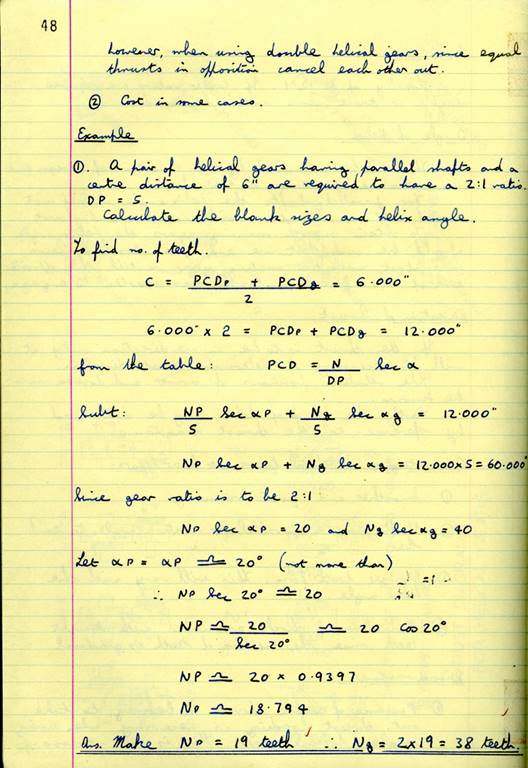 48
however, when using double helical gears, since equal
thrusts in opposition cancel each other out.
② Cost in some cases.
Example
①. A pair of helical gears having parallel shafts and a
centre distance of 6" are required to have a 2:1 ratio.
DP = 5.
Calculate the blank sizes and helix angle.
To find no. of teeth.
C = PCDP + PCDg / 2 = 6.000"
6.000" x 2 = PCDP + PCDg = 12.000"
from the table: PCD = N / DP Sec α
Subt: NP / 5 Sec αP + Ng / 5 Sec αg = 12.000"
NP Sec αP + Ng Sec αg = 12.000x5 = 60.000"
Since gear ratio is to be 2:1
NP Sec αP = 20 and Ng Sec αg = 40
Let αP = αP ≏ 20° (not more than)
∴ NP Sec 20° ≏ 20
NP ≏ 20 / Sec 20° ≏ 20 Cos 20°
NP ≏ 20 x 0.9397
NP ≏ 18.794
Ans. Make NP = 19 teeth ∴ Ng = 2x19 = 38 teeth.